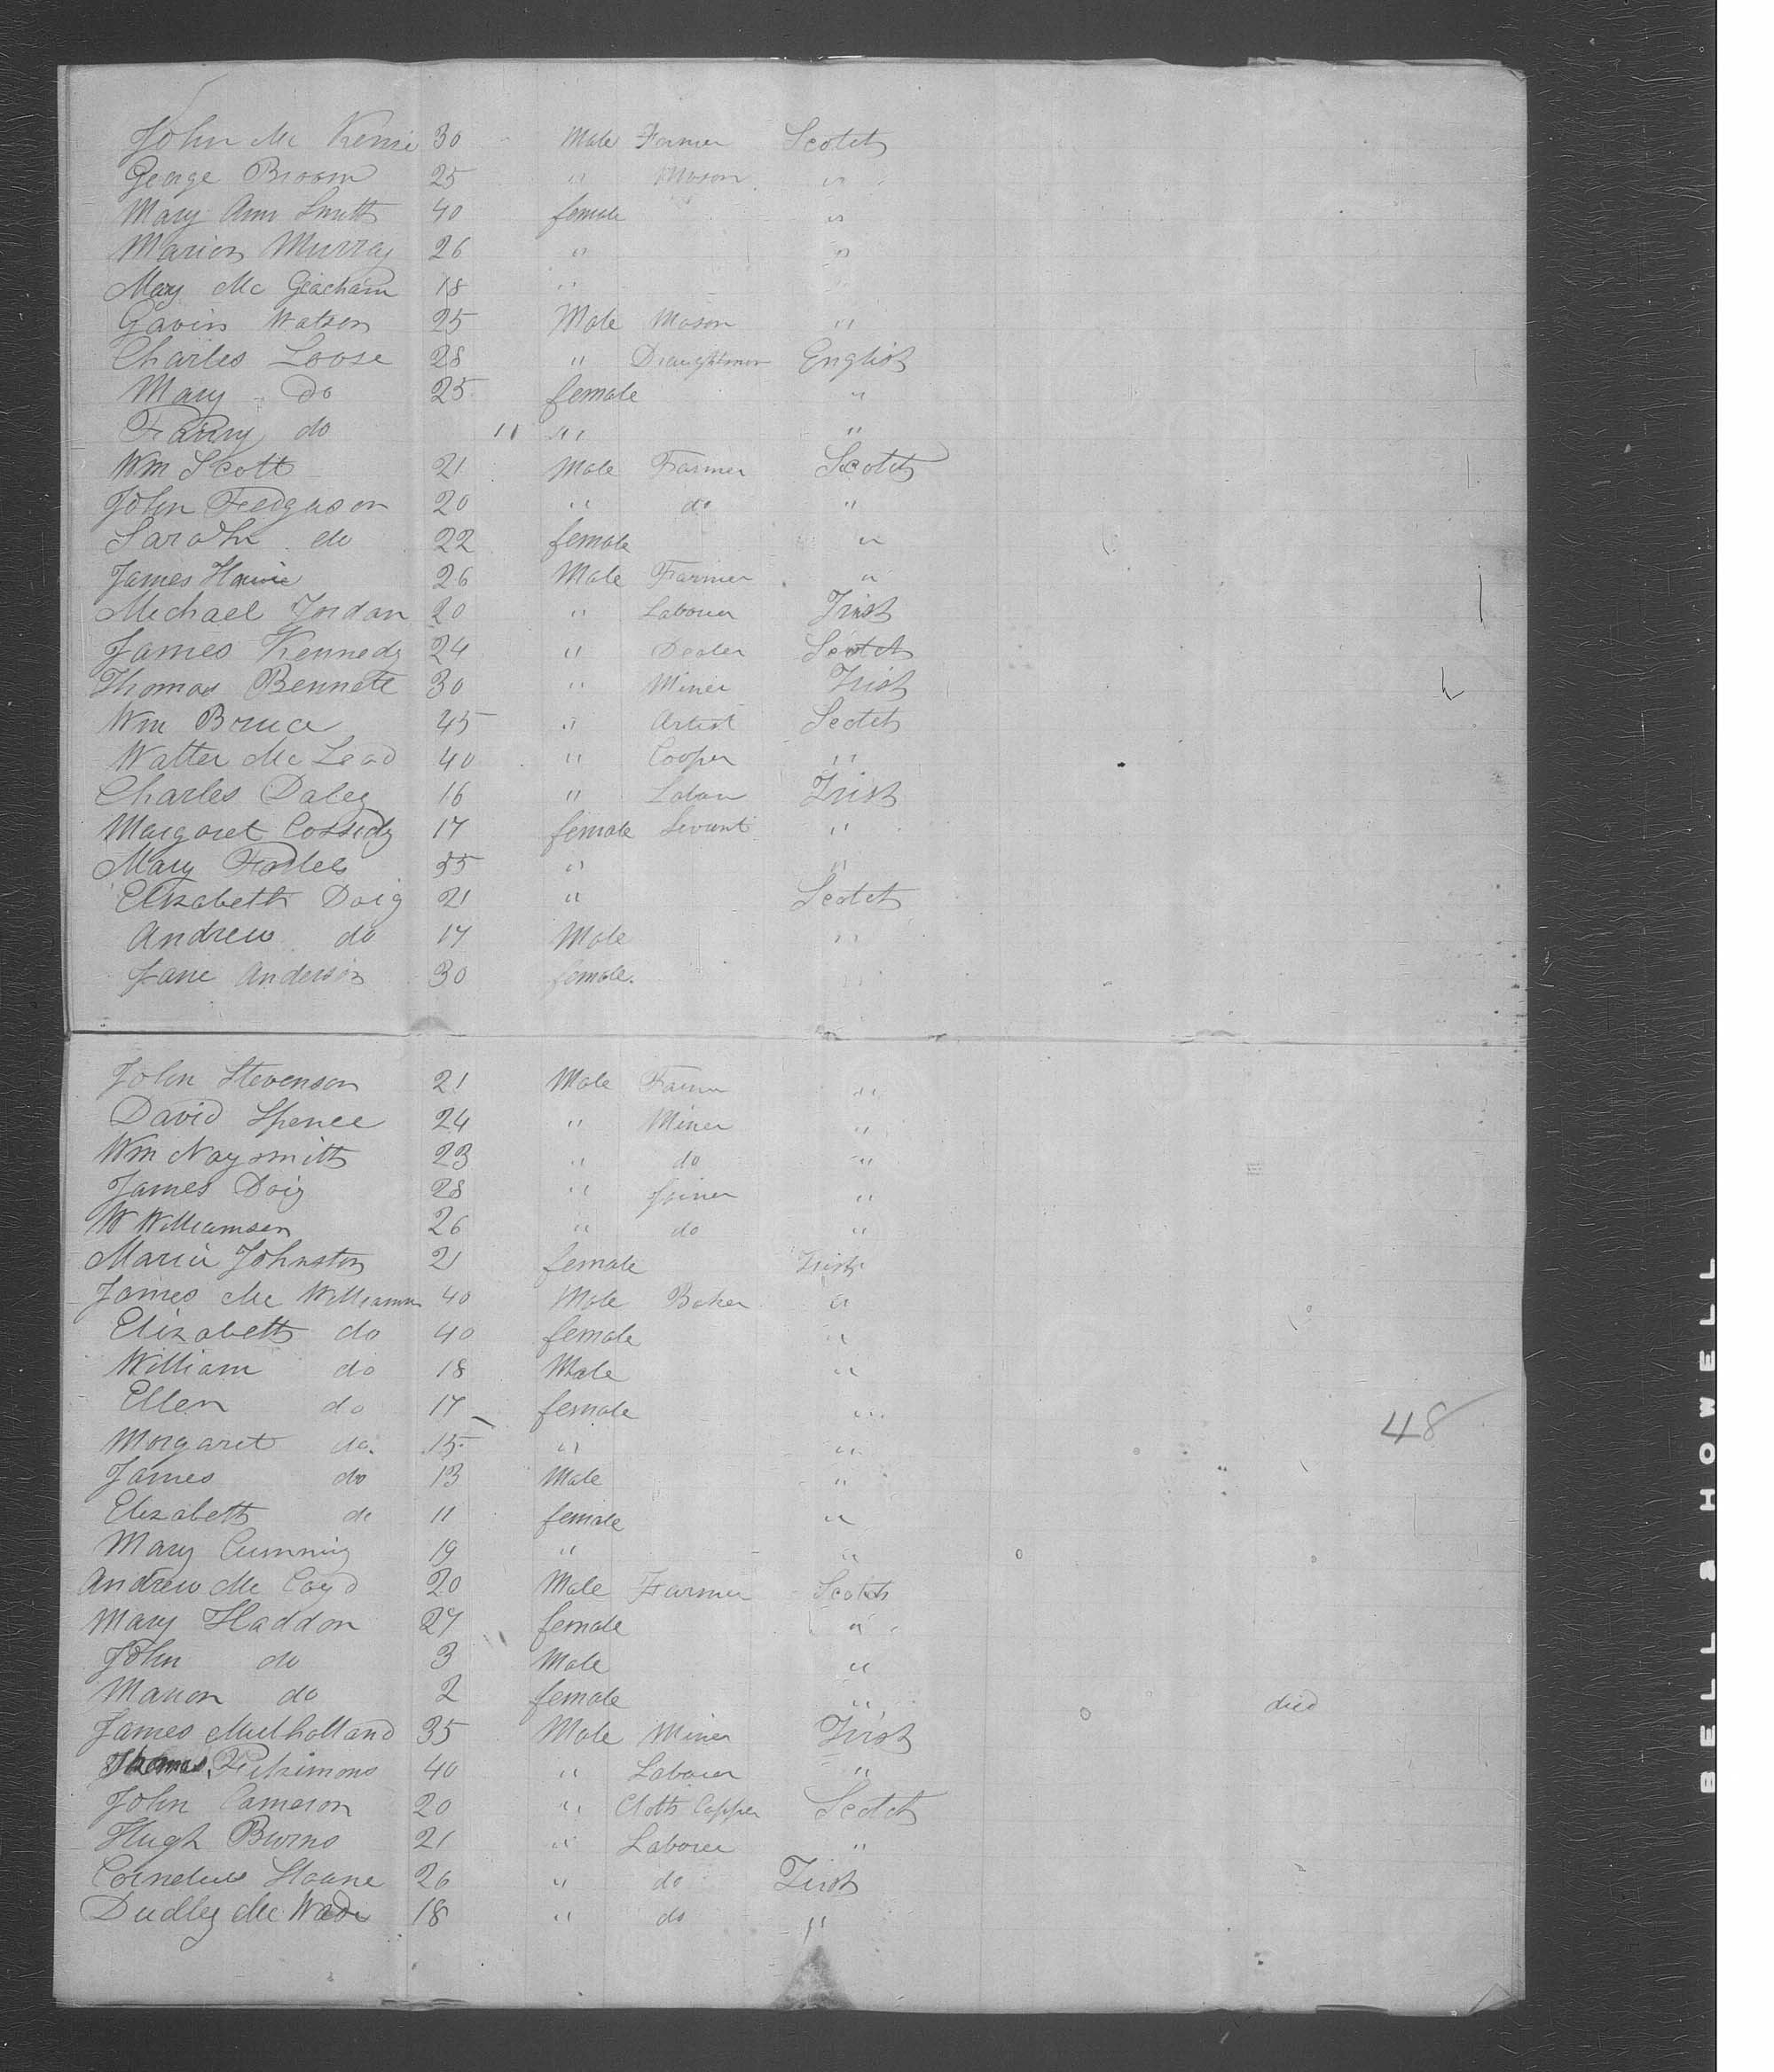 John Mc Kenzie 30 Male Farmer Scotch
George Broom 25 " Mason "
Mary Ann Smith 40 female "
Marion Murray 26 " "
Mary Mc Geacham 18 " "
Gavin Watson 25 Male Mason "
Charles Loose 28 " Draughtman English
Mary do 25 female "
Fanny do 11 " "
Wm Scott 21 Male Farmer Scotch
John Fedguson 20 " do "
Sarah do 22 female "
James Howie 26 Male Farmer "
Michael Jordan 20 " Laborer Irish
James Kennedy 24 " Dealer Scotch
Thomas Bennett 30 " Miner Irish
Wm Bruce 45 " Artist Scotch
Walter Mc Lead 40 " Cooper "
Charles Daley 16 " Labour Irish
Margaret Cossidy 17 female Servant "
Mary 55 " "
Elizabeth Doig 21 " Scotch
Andrew do 17 Male "
Jane Anderson 30 female. "
John Stevenson 21 Male Farmer "
David Spence 24 " Miner "
Wm Naysmith 23 " do "
James Doig 28 " Joiner "
W Williamson 26 " do "
Maria Johnston 21 female Irish
James Mc Williams 40 Male Baker "
Elizabeth do 40 female "
William do 18 Male "
Ellen do 17 female "
Margaret do. 15 " "
48
James do 13 Male "
Elizabeth do 11 female "
Mary Cumming 19 " "
Andrew Mc Coyd 20 Male Farmer Scotch
Mary Haddon 27 female "
John do 3 Male "
Marion do 2 female " died
James Mulholland 35 Male Miner Irish
Thomas Fitzimons 40 " Laborer "
John Cameron 20 " Cloth Capper Scotch
Hugh Burns 21 " Laborer "
Cornelius Hoane 26 " do Irish
Dudley Mc Wade 18 " do "
BELL & HOWELL